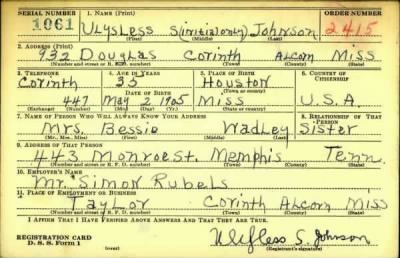 SERIAL NUMBER 1. NAME (Print) ORDER NUMBER
1061 Ulysless S(initial only) Johnson 2415
(First) (Middle) (Last)
2. ADDRESS (Print)
932 Douglas Corinth Alcorn Miss
(Number and street or R. F. D. number) (Town) (County) (State)
3. TELEPHONE 4. AGE IN YEARS 5. PLACE OF BIRTH 6. COUNTRY OF CITIZENSHIP
Corinth 35 Houston
DATE OF BIRTH (Town or county)
447 May 2 1905 Miss U.S.A.
(Exchange) (Number) (Mo.) (Day) (Yr.) (State or country)
7. NAME OF PERSON WHO WILL ALWAYS KNOW YOUR ADDRESS 8. RELATIONSHIP OF THAT PERSON
Mrs. Bessie Wadley Sister
(Mr., Mrs., Miss) (First) (Middle) (Last)
9. ADDRESS OF THAT PERSON
443 Monroe st. Memphis Tenn
(Number and street or R. F. D. number) (Town) (County) (State)
10. EMPLOYER'S NAME
Mr. Simon Rubels
11. PLACE OF EMPLOYMENT OR BUSINESS
Taylor Corinth Alcorn Miss
(Number and street or R. F. D. number) (Town) (County) (State)
I AFFIRM THAT I HAVE VERIFIED ABOVE ANSWERS AND THAT THEY ARE TRUE.
REGISTRATION CARD
D. S. S. Form 1 (over) Ulysless S. Johnson
(Registrant's signature)